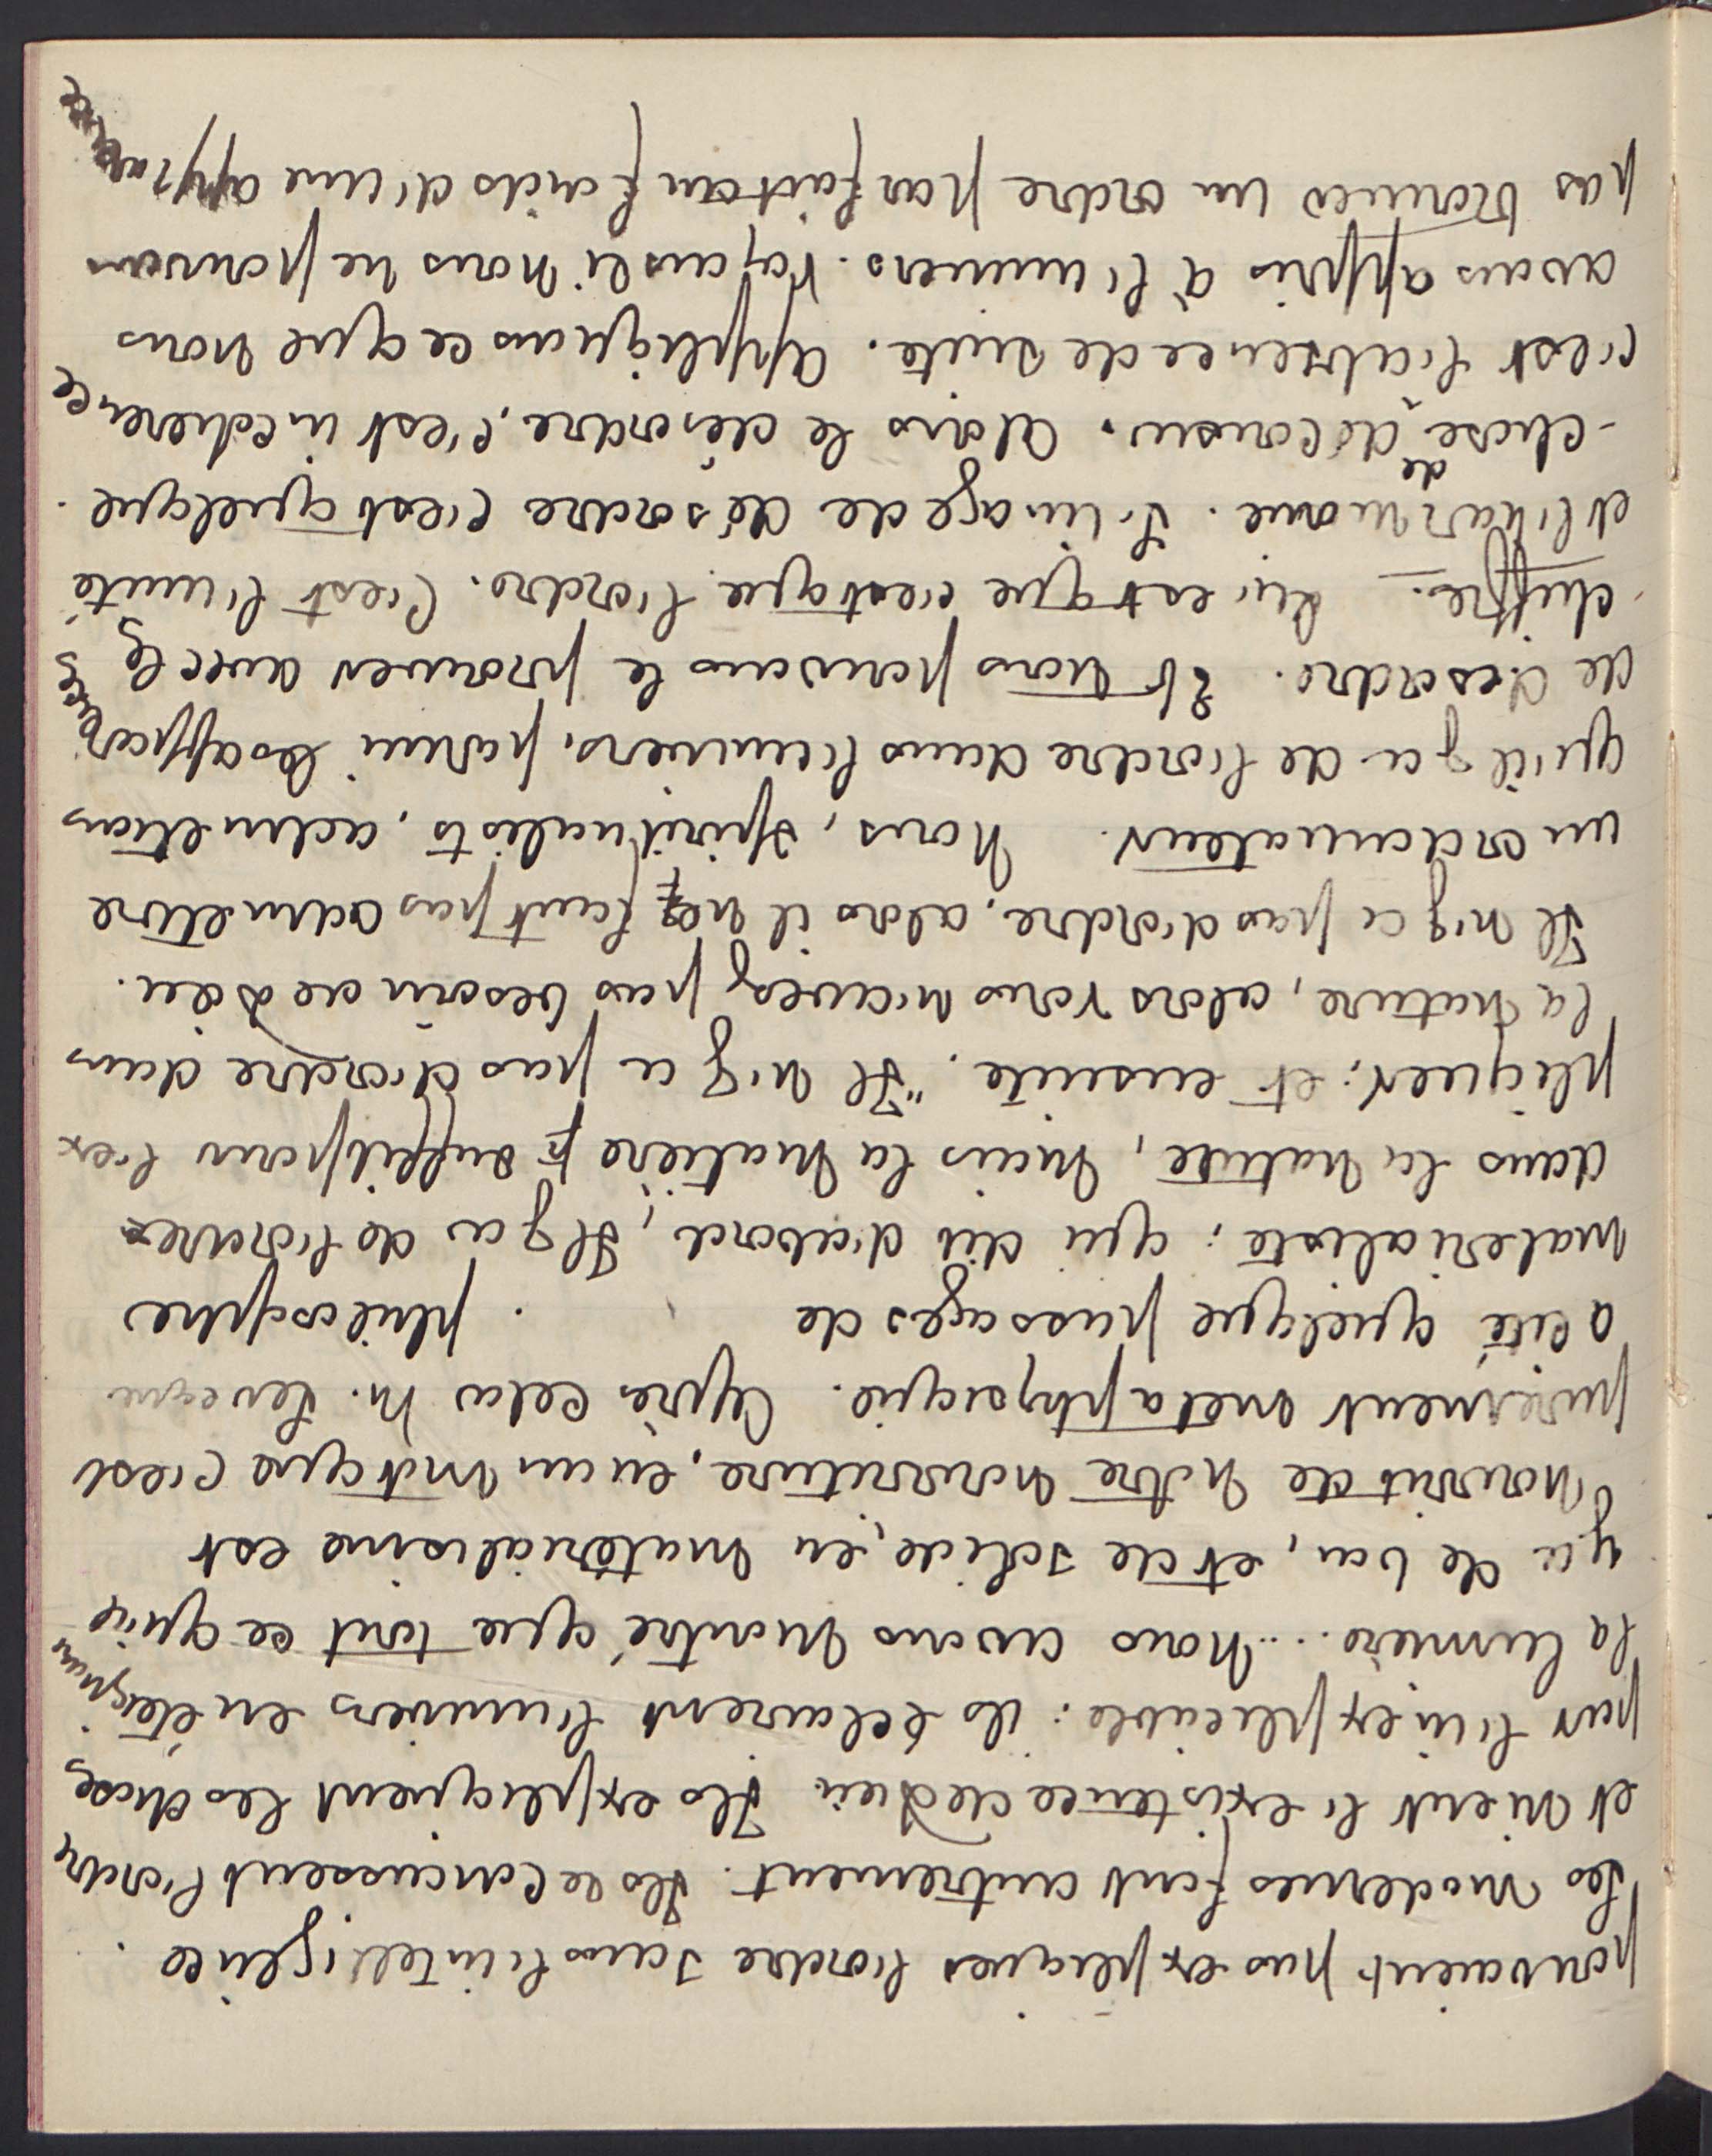 pouvaient pas expliquer l'ordre sans l'intelligence.
Les modernes font autrement. Ils reconnaissent l'ordre
et nient l'existence de Dieu. Ils expliquent les choses
par l'inexplicable : ils éclairent l'univers en éteignant
la lumière... Nous avons montré que tout ce qu'il
y a de bon, et de solide, en matérialisme est
nourrit de notre nourriture, en un mot que c'est
purement metaphysique. Après cela M. Leveque
a cité quelque passages de . philosophe
materialiste ; qui dit d'abord, Il y a de l'ordre
dans la nature, mais la matière suffit pour l'ex
pliquer ; et ensuite. "Il n'y a pas d'ordre dans
la nature, alors vous n'avez pas besoin de Dieu.
Il n'y a pas d'ordre, alors il ne faut pas admettre
un ordonnateur. Nous, spiritualists, admettons
qu'il y a de l'ordre dans l'univers, parmi les apparences
de desordre. Et nous pouvons le prouver avec le
chiffre. Qu'est que c'est que l'ordre. C'est l'unité
et l'harmonie. L'image de désordre c'est quelque
-chose de décousu. Alors le désordre, c'est incoherence
c'est l'absence de suite. Appliquons ce que nous
avons appris à l'univers. Voyons si nous ne pouvons
pas trouver un ordre parfait au fonds d'une apparence